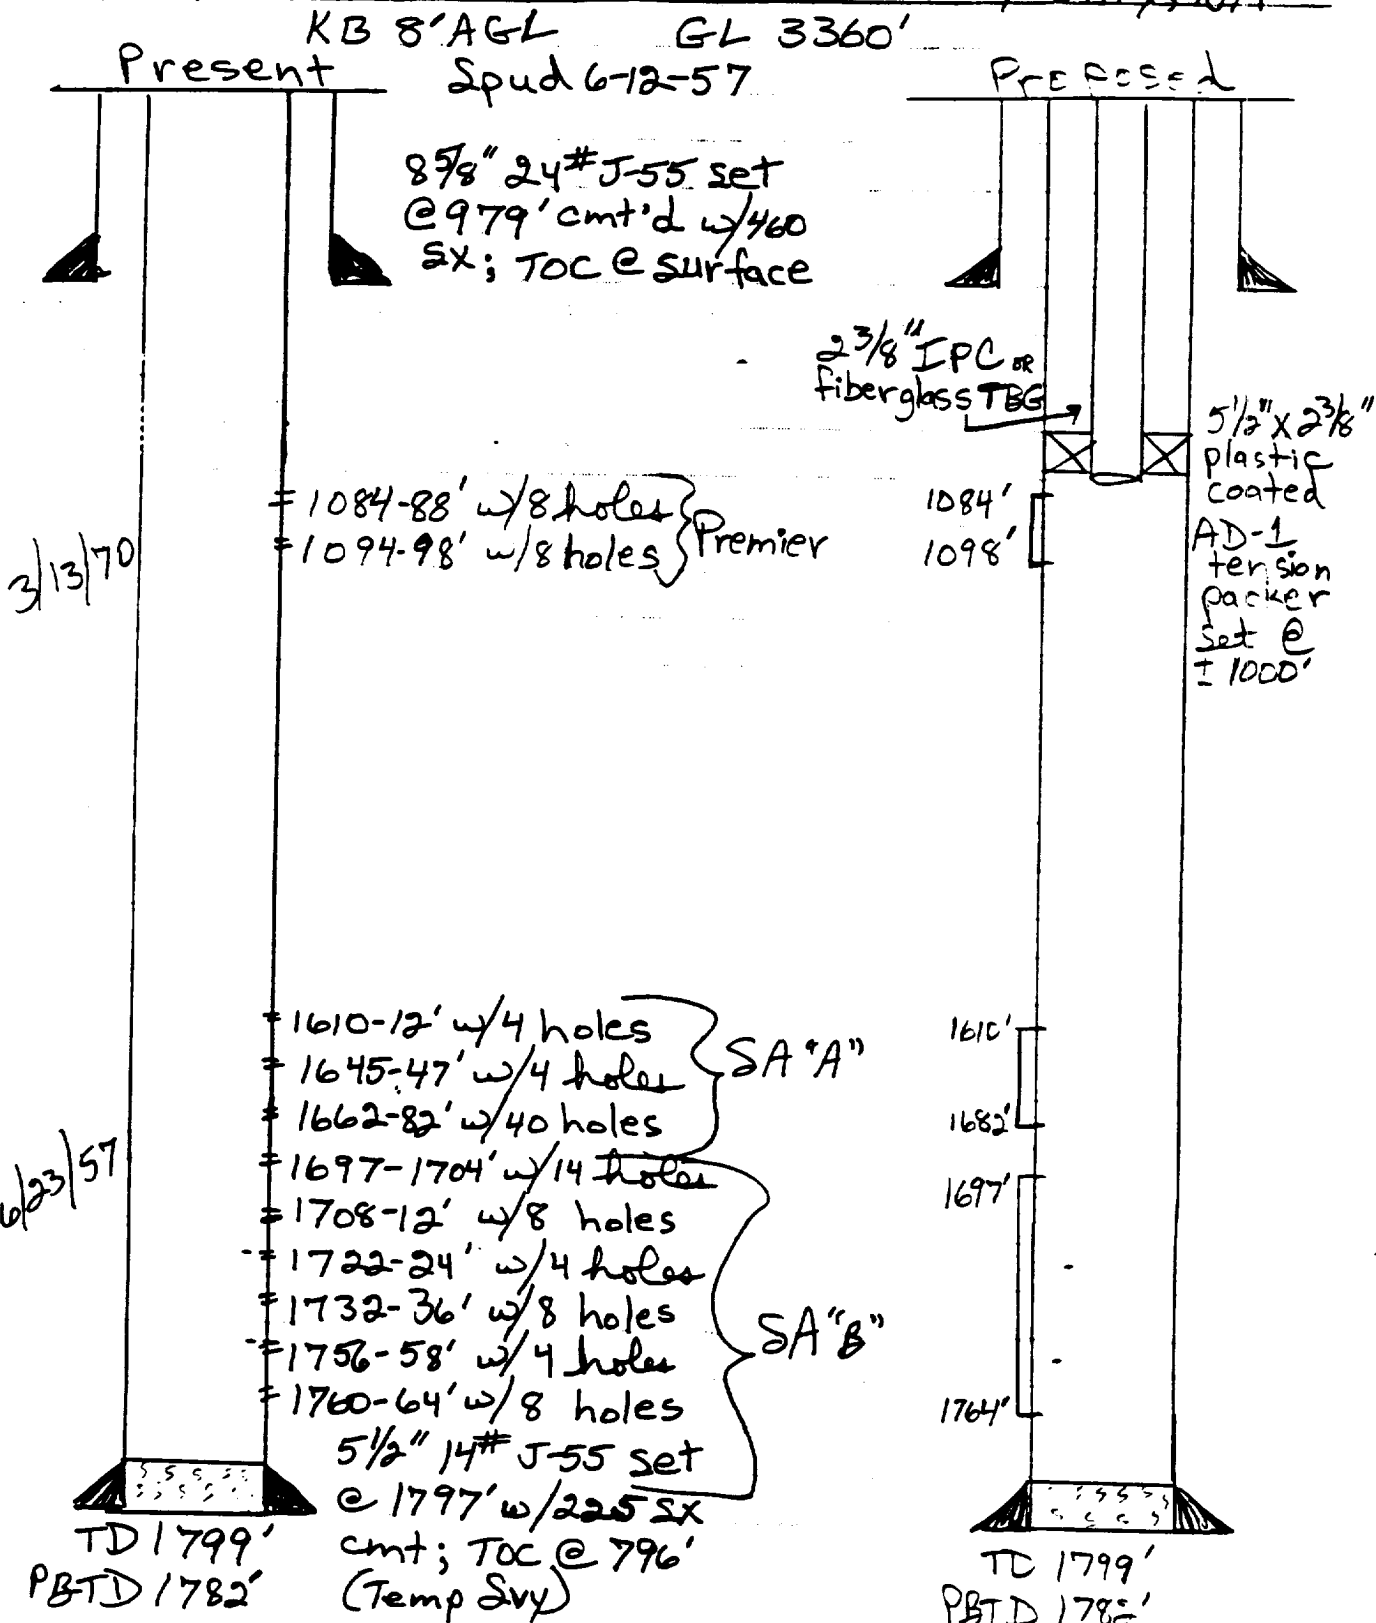 KB 8' AGL GL 3360'
Present
Spud 6-12-57
Proposed
8 5/8" 24# J-55 set
@ 979' cmt'd w/460
sx; TOC @ surface
2 3/8" IPC OR
fiberglass TBG
5 1/2" x 2 3/8"
plastic
coated
AD-1
tension
packer
set @
± 1000'
3/13/70
1084-88' w/8 holes
1094-98' w/8 holes
Premier
1084'
1098'
6/23/57
1610-12' w/4 holes
1645-47' w/4 holes
1662-82' w/40 holes
SA "A"
1697-1704' w/14 holes
1708-12' w/8 holes
1722-24' w/4 holes
1732-36' w/8 holes
1756-58' w/4 holes
1760-64' w/8 holes
SA "B"
1610'
1682'
1697'
1764'
5 1/2" 14# J-55 set
@ 1797' w/225 sx
cmt; TOC @ 796'
(Temp Svy)
TD 1799'
PBTD 1782'
TD 1799'
PBTD 1782'